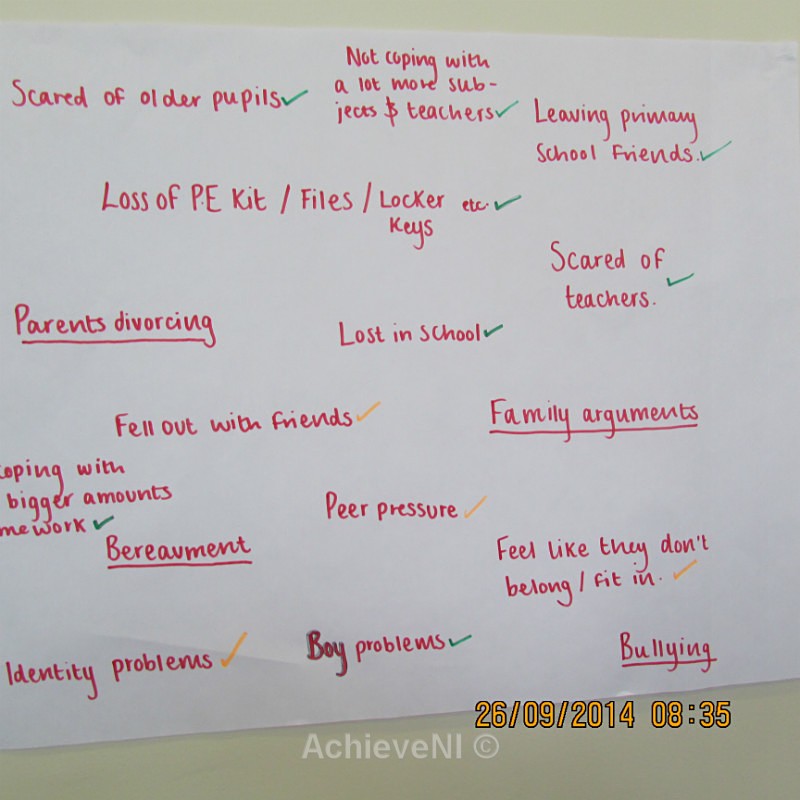 Scared of older pupils
Not coping with
a lot more sub-
jects & teachers
Leaving primary
School Friends.
Loss of P.E Kit / Files / Locker etc.
Keys
Scared of
teachers.
Parents divorcing
Lost in school
Fell out with friends
Family arguments
coping with
bigger amounts
mework
Peer pressure
Bereavment
Feel like they don't
belong / fit in.
Identity problems
Boy problems
Bullying
26/09/2014 08:35
AchieveNI ©